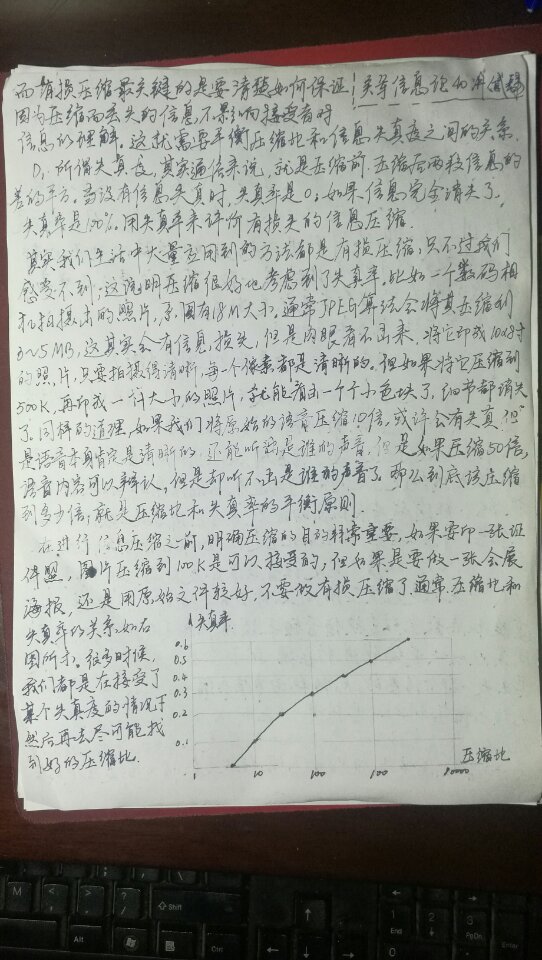 而有损压缩最关键的是要清楚如何保证
吴军信息论40讲
因为压缩而丢失的信息不影响接受者对
信息的理解。这就需要平衡压缩比和信息失真度之间的关系.
D. 所谓失真度,其实通俗来说,就是压缩前压缩后两段信息的
差的平方。当没有信息失真时,失真率是0,如果信息完全消失了,
失真率是100%,用失真率来评价有损失的信息压缩.
其实我们生活中大量应用到的方法都是有损压缩,只不过我们
感受不到,这说明压缩很好地考虑到了失真率,比如一个数码相
机拍摄出的照片,原图有18M大小,通常JPEG算法会将其压缩到
3~5MB,这其实会有信息损失,但是肉眼看不出来,将它印成10x8寸
的照片,只要拍摄得清晰,每一个像素都是清晰的。但如果将它压缩到
500K,再印成一样大小的照片,就能看出一个个小色块了,细节都消失
了.同样的道理,如果我们将原始的语音压缩10倍,或许会有失真,但
是语音本身肯定是清晰的,还能听出是谁的声音,但是如果压缩50倍,
语音内容可以辨认,但是却听不出是谁的声音了。那么到底该压缩
到多少倍,就是压缩比和失真率的平衡原则
在进行信息压缩之前,明确压缩的目的非常重要,如果要印一张证
件照,图片压缩到100K是可以接受的,但如果是要做一张会展
海报,还是用原始文件较好,不要做有损压缩了.通常,压缩比和
失真率的关系如右
图所示。很多时候,
我们都是在接受了
某个失真度的情况下
然后再去尽可能找
到好的压缩比.
失真率
0.6
0.5
0.4
0.3
0.2
0.1
1
10
100
100
10000
压缩比
Shift
Alt
Ctrl
1
End
2
3
PgDn
Enter
0